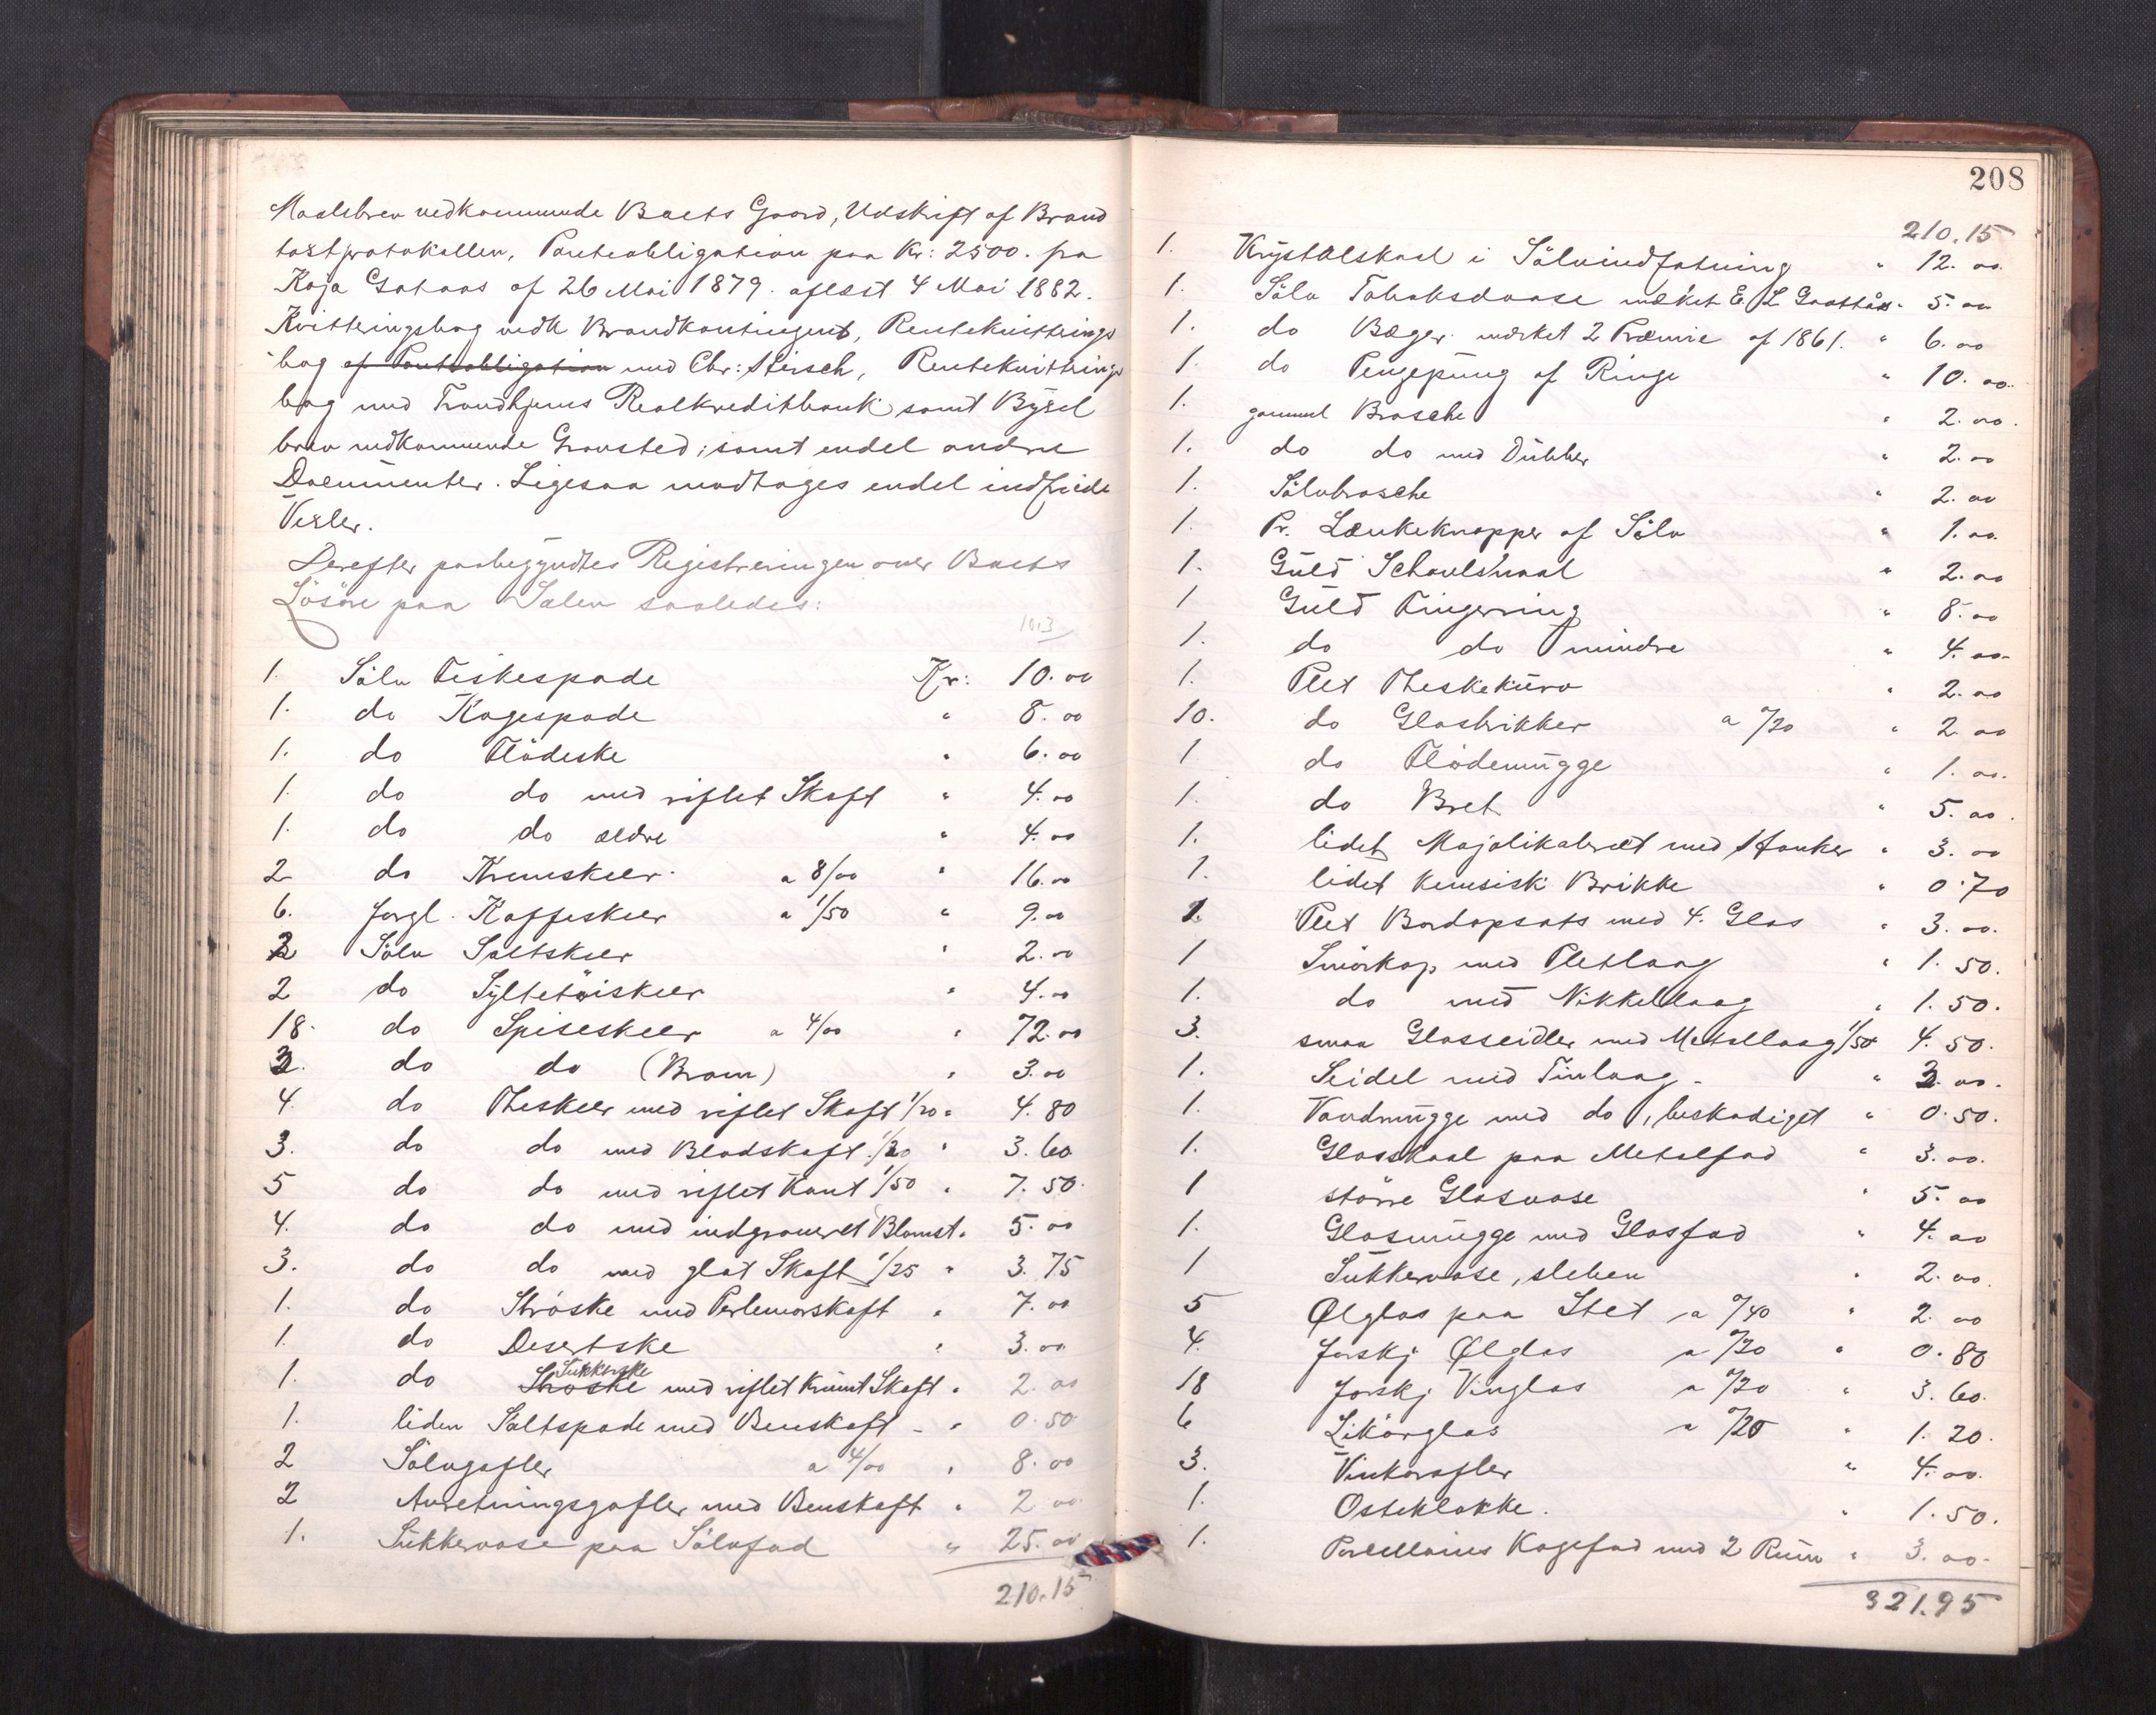 Maalebrev vedkommende Boets Gaard, Udskrift af Brand
taxtprotokollen, Panteobligation paa Kr: 2500. fra
Kaja af 26 Mai 1879. aflæst 4 Mai 1882.
Kvitteringsbog vedk Brandkontingent, Rentekvitterings
bog af Panteobligation med Chr: Hirsch, Rentekvitterings
bog med Trondhjems Realkreditbank samt Byxel
brev vedkommende Gravsted; samt endel andre
Documenter. Ligesaa modtages endel indfriede
Vexler.
Derefter paabegyndtes Registreringen over Boets
Løsøre paa Salen saaledes:
1. Sølv Fiskespade Kr: 10.00
1. do Kagespade " 8.00
1. do Flødeske " 6.00
1. do do med riflet Skaft " 4.00
1. do do ældre " 4.00
2 do Kremskeer a 8/00 " 16.00
6. forgl. Kaffeskeer a 1/50 " 9.00
2 Sølv Saltskeer " 2.00
2 do Syltetøiskeer " 4.00
18. do Spiseskeer a 4/00 " 72.00
2. do do (Bram) " 3.00
4. do Theskeer med riflet Skaft 1/20 " 4.80
3. do do med Bladskaft 1/20 " 3.60
5 do do med riflet Kant 1/50 " 7.50
4. do do med indgraveret Blomst " 5.00
3. do do med glat Skaft 1/25 " 3.75
1. do Strøske med Perlemorskaft " 7.00
1. do Desertske " 3.00
1. do Strøske Sukkerske med riflet Krumt Skaft " 2.00
1. liden Saltspade med Benskaft " 0.50
2 Sølvgafler a 4/00 " 8.00
2 Anretningsgafler med Benskaft " 2.00
1. Sukkervase paa Sølvfad " 25.00
210.15
208
210.15
1. Krystalskaal i Sølvindfatning " 12.00
1. Sølv Tobaksdaase mærket E. L " 5.00
1. do Bæger mærket 2 Præmie af 1861. " 6.00
1. do Pengepung af Ringe " 10.00
1. gammel Brosche " 2.00
1. do do med Dubber " 2.00
1. Sølvbrosche " 2.00
1. Pr. Lænkeknapper af Sølv " 1.00
1. Guld Schavlsnaal " 2.00
1 Guld Fingerring " 8.00
1. do do mindre " 4.00
1. Plet Theskekurv " 2.00
10. do Glasbrikker a 0/20 " 2.00
1 do Flødemugge " 1.00
1. do Bret " 5.00
1. lidet Majolikabræt med Hanker " 3.00
1. lidet kinesisk Brikke " 0.70
1. Plet Bordopsats med 4. Glas " 3.00
1 Smørkop med Pletlaag " 1.50.
1. do med Nikkellaag " 1.50.
3. smaa Glasseidler med Metallaag 1/50 4.50.
1. Seidel med Tinlaag " 3.00.
1. Vandmugge med do, beskadiget " 0.50.
1. Glasskaal paa Metalfad " 3.00.
1 større Glasvase " 5.00
1. Glasmugge med Glasfad " 4.00
1 Sukkervase, sleben " 2.00.
5 Ølglas paa Stet a 0/40 " 2.00
4. forskj Ølglas a 0/20 " 0.80
18 forskj Vinglas a 0/20 " 3.60.
6 Likørglas a 0/20 " 1.20.
3. Vinkarafler " 4.00.
1. Osteklokke. " 1.50.
1. Porcellains Kagefad med 2 Rum " 3.00.
321.95